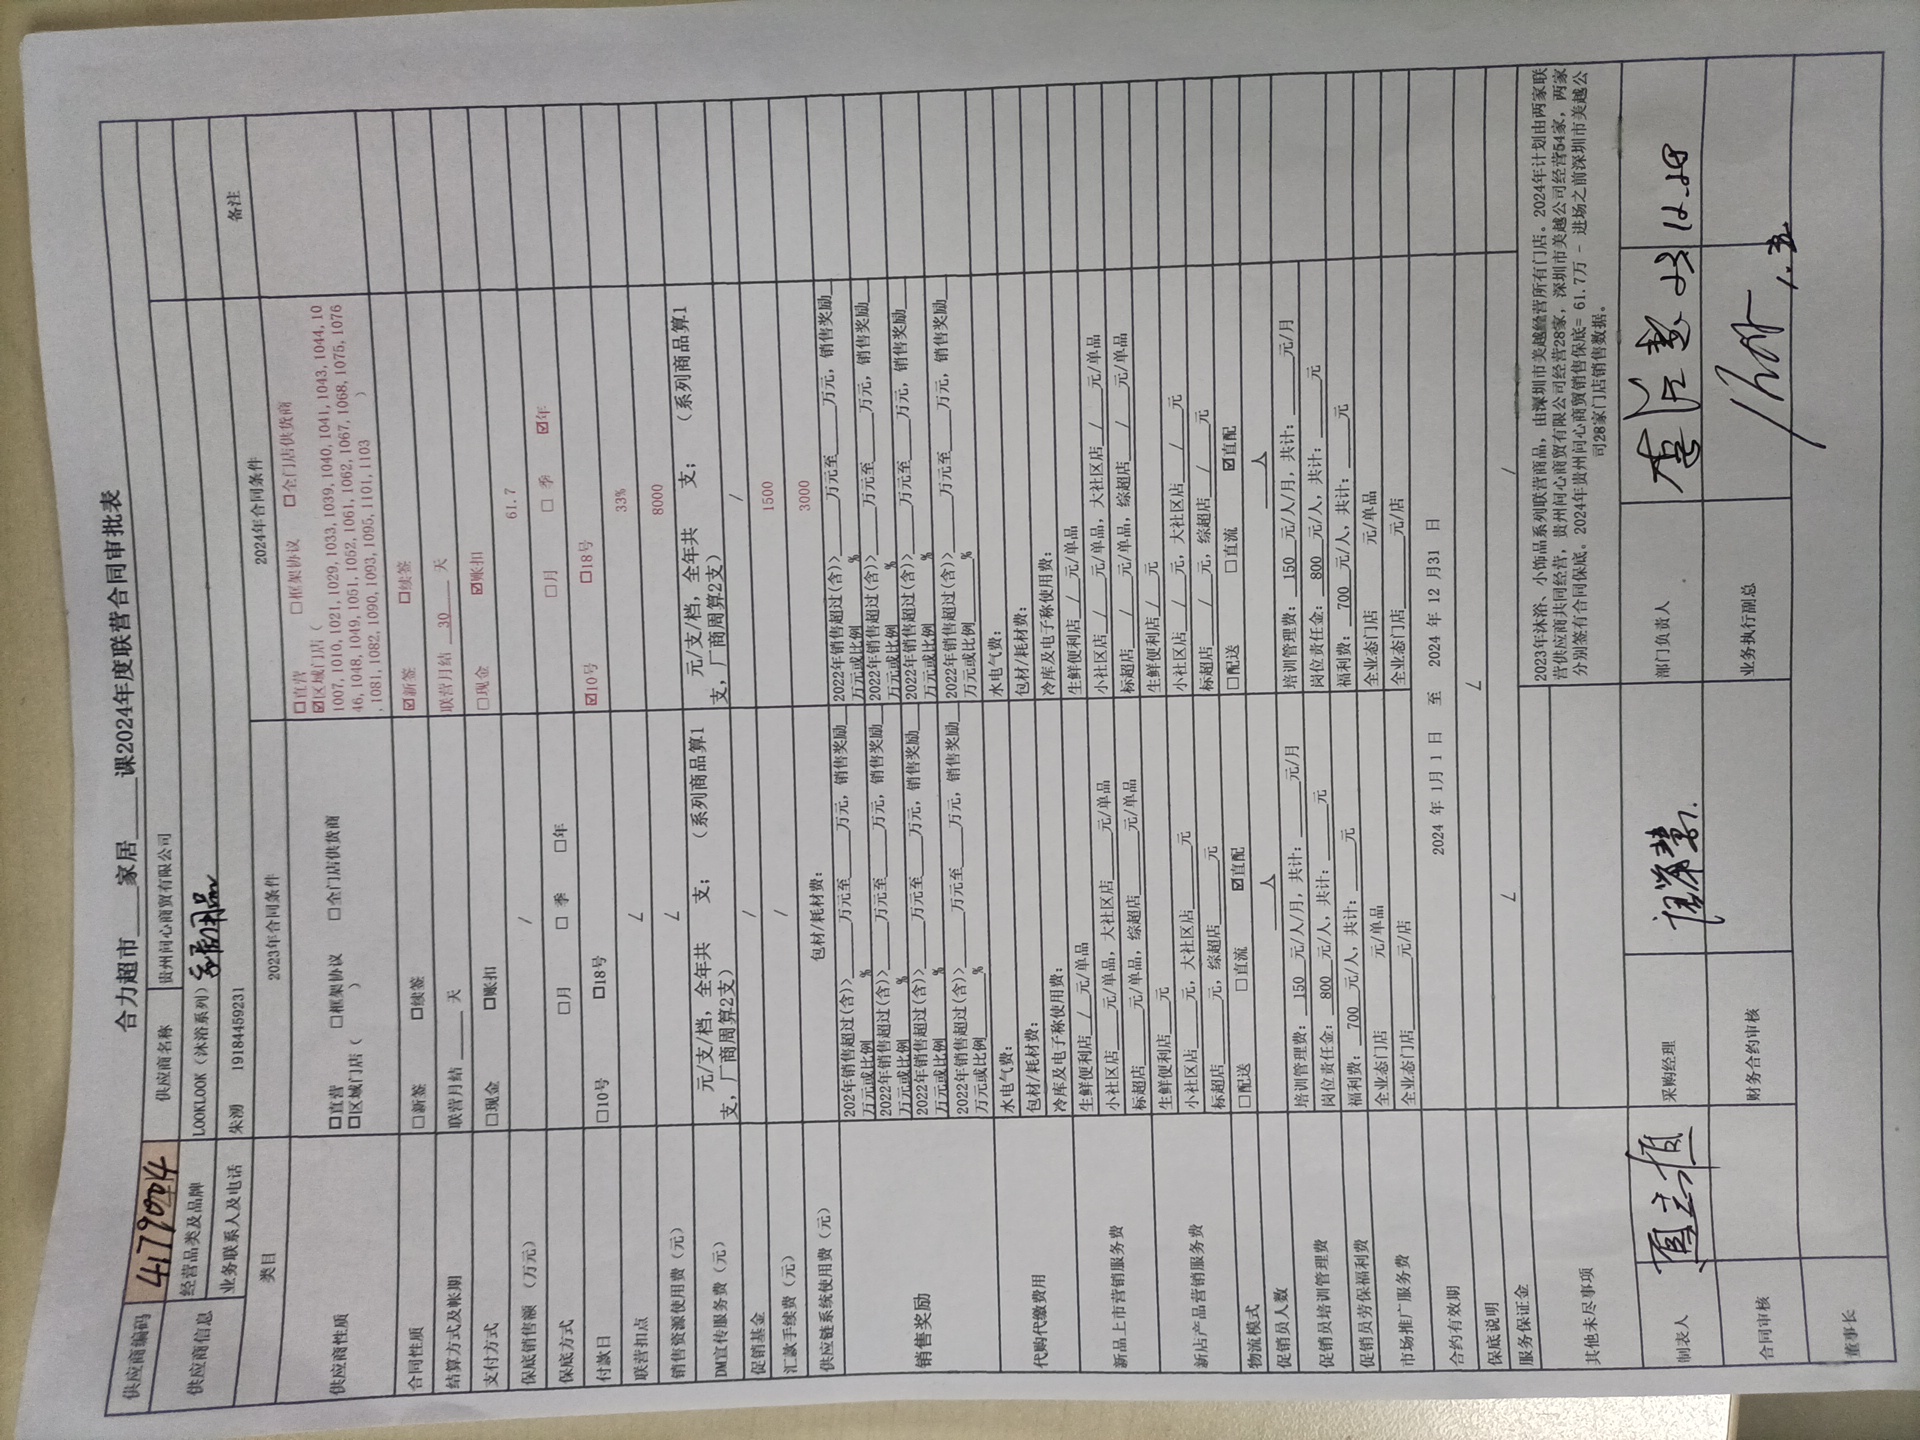 合力超市 家居 课2024年度联营合同审批表
供应商编码 4179004 供应商名称 贵州问心商贸有限公司
供应商信息 经营品类及品牌 LOOKLOOK（沐浴系列）
业务联系人及电话 朱涝 19184459231
备注
类目 2023年合同条件 2024年合同条件
供应商性质
□直营 □框架协议 □全门店供货商
□区域门店（ ）
□直营 □框架协议 □全门店供货商
☑区域门店（
1007, 1010, 1021, 1029, 1033, 1039, 1040, 1041, 1043, 1044, 10
46, 1048, 1049, 1051, 1052, 1061, 1062, 1067, 1068, 1075, 1076
, 1081, 1082, 1090, 1093, 1095, 1101, 1103 ）
合同性质 □新签 □续签 ☑新签 □续签
结算方式及帐期 联营月结 天 联营月结 30 天
支付方式 □现金 □账扣 □现金 ☑账扣
保底销售额 （万元） / 61.7
保底方式 □月 □ 季 □年 □月 □ 季 ☑年
付款日 □10号 □18号 ☑10号 □18号
联营扣点 / 33%
销售资源使用费（元） / 8000
DM宣传服务费（元） 元/支/档，全年共 支； （系列商品算1支，厂商周算2支） 元/支/档，全年共 支； （系列商品算1支，厂商周算2支）
促销基金 / /
汇款手续费（元） / 1500
供应链系统使用费（元） 包材/耗材费： 3000
销售奖励
2022年销售超过(含)>____万元至____万元，销售奖励__万元或比例____%
2022年销售超过(含)>____万元至____万元，销售奖励__万元或比例____%
2022年销售超过(含)>____万元至____万元，销售奖励__万元或比例____%
2022年销售超过(含)>____万元至____万元，销售奖励__万元或比例____%
2022年销售超过(含)>____万元至____万元，销售奖励__万元或比例____%
2022年销售超过(含)>____万元至____万元，销售奖励__万元或比例____%
2022年销售超过(含)>____万元至____万元，销售奖励__万元或比例____%
2022年销售超过(含)>____万元至____万元，销售奖励__万元或比例____%
代购代缴费用
水电气费： 水电气费：
包材/耗材费： 包材/耗材费：
冷库及电子称使用费： 冷库及电子称使用费：
新品上市营销服务费
生鲜便利店__/__元/单品 生鲜便利店__/__元/单品
小社区店____元/单品，大社区店____元/单品 小社区店__/__元/单品，大社区店__/__元/单品
标超店____元/单品，综超店____元/单品 标超店__/__元/单品，综超店__/__元/单品
新店产品营销服务费
生鲜便利店____元 生鲜便利店__/__元
小社区店____元，大社区店____元 小社区店__/__元，大社区店__/__元
标超店____元，综超店____元 标超店__/__元，综超店__/__元
物流模式 □配送 □直流 ☑直配 □配送 □直流 ☑直配
促销员人数 人 人
促销员培训管理费
培训管理费：150 元/人/月，共计：____元/月 培训管理费：150 元/人/月，共计：____元/月
岗位责任金：800 元/人，共计：____元 岗位责任金：800 元/人，共计：____元
促销员劳保福利费 福利费：700 元/人，共计：____元 福利费：700 元/人，共计：____元
市场推广服务费
全业态门店 元/单品 全业态门店 元/单品
全业态门店____元/店 全业态门店____元/店
合约有效期 2024 年 1月 1 日 至 2024 年 12 月31 日
保底说明 /
服务保证金 / /
其他未尽事项
2023年沐浴、小饰品系列联营商品，由深圳市美越经营所有门店。2024年计划由两家联
营供应商共同经营，贵州问心商贸有限公司经营28家，深圳市美越公司经营54家，两家
分别签有合同保底。2024年贵州问心商贸销售保底= 61.7万 - 进场之前深圳市美越公
司28家门店销售数据。
制表人 采购经理 部门负责人 12.28
合同审核 财务合约审核 业务执行副总
董事长